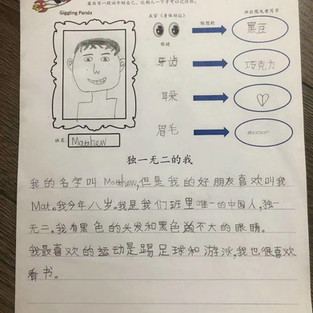 Giggling Panda
眼睛
黑豆
牙齿
巧克力
耳朵
眉毛
姓名:
Matthew
独一无二的我
我的名字叫 Matthew,但是我的好朋友喜欢叫我
Mat。我今年八岁。我是我们班里唯一的中国人,独一
无二。我有黑色的头发和黑色的不大的眼睛。
我最喜欢的运动是踢足球和游泳。我也很喜欢
看书。